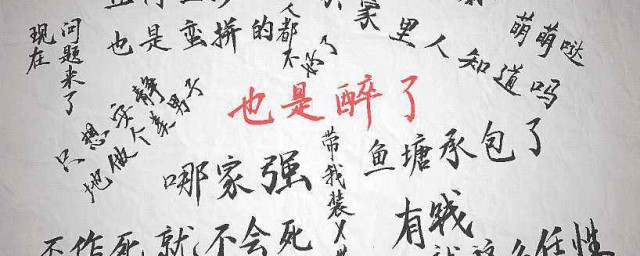 现在
问题来了
也是蛮拼的
人都不好了
家里人知道吗
萌萌哒
只想安静
地做个美男子
也是醉了
哪家强
带我装X
鱼塘承包了
不作死就不会死
有钱
就这么任性